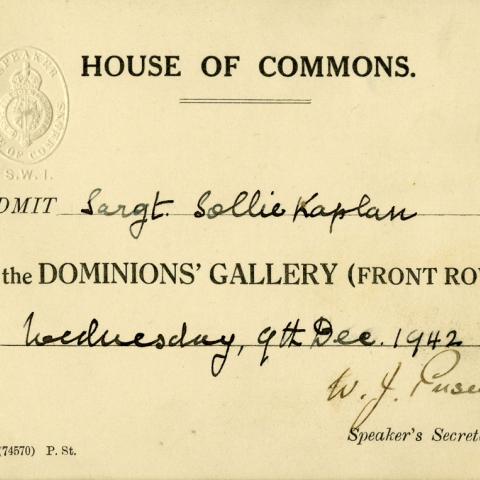 SPEAKER
OF COMMONS
S.W.1.
HOUSE OF COMMONS.
DMIT Sargt. Sollie Kaplan
the DOMINIONS' GALLERY (FRONT RO
Wednesday, 9th Dec. 1942
W. J.
Speaker's Secret
(74570) P. St.